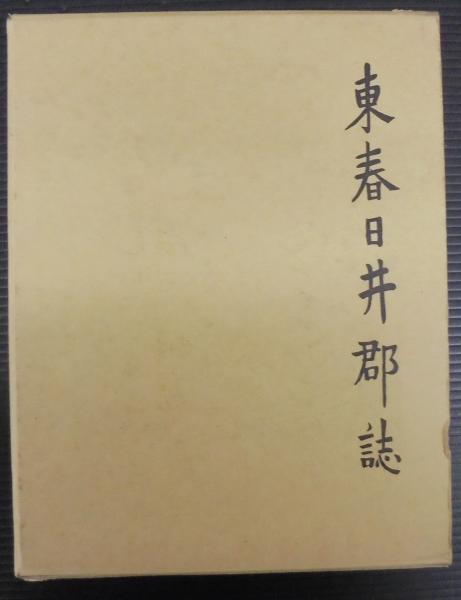 東春日井郡誌